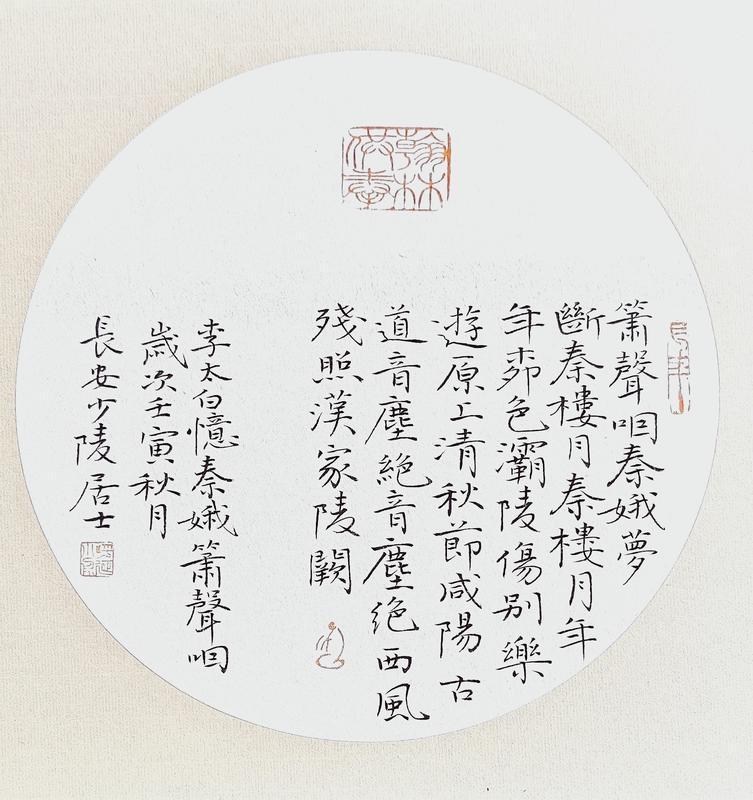 翰林供奉
簫聲咽秦娥夢
斷秦樓月秦樓月年
年桺色灞陵傷别樂
遊原上清秋節咸陽古
道音塵絕音塵絕西風
殘照漢家陵闕
李太白憶秦娥簫聲咽
歲次壬寅秋月
長安少陵居士